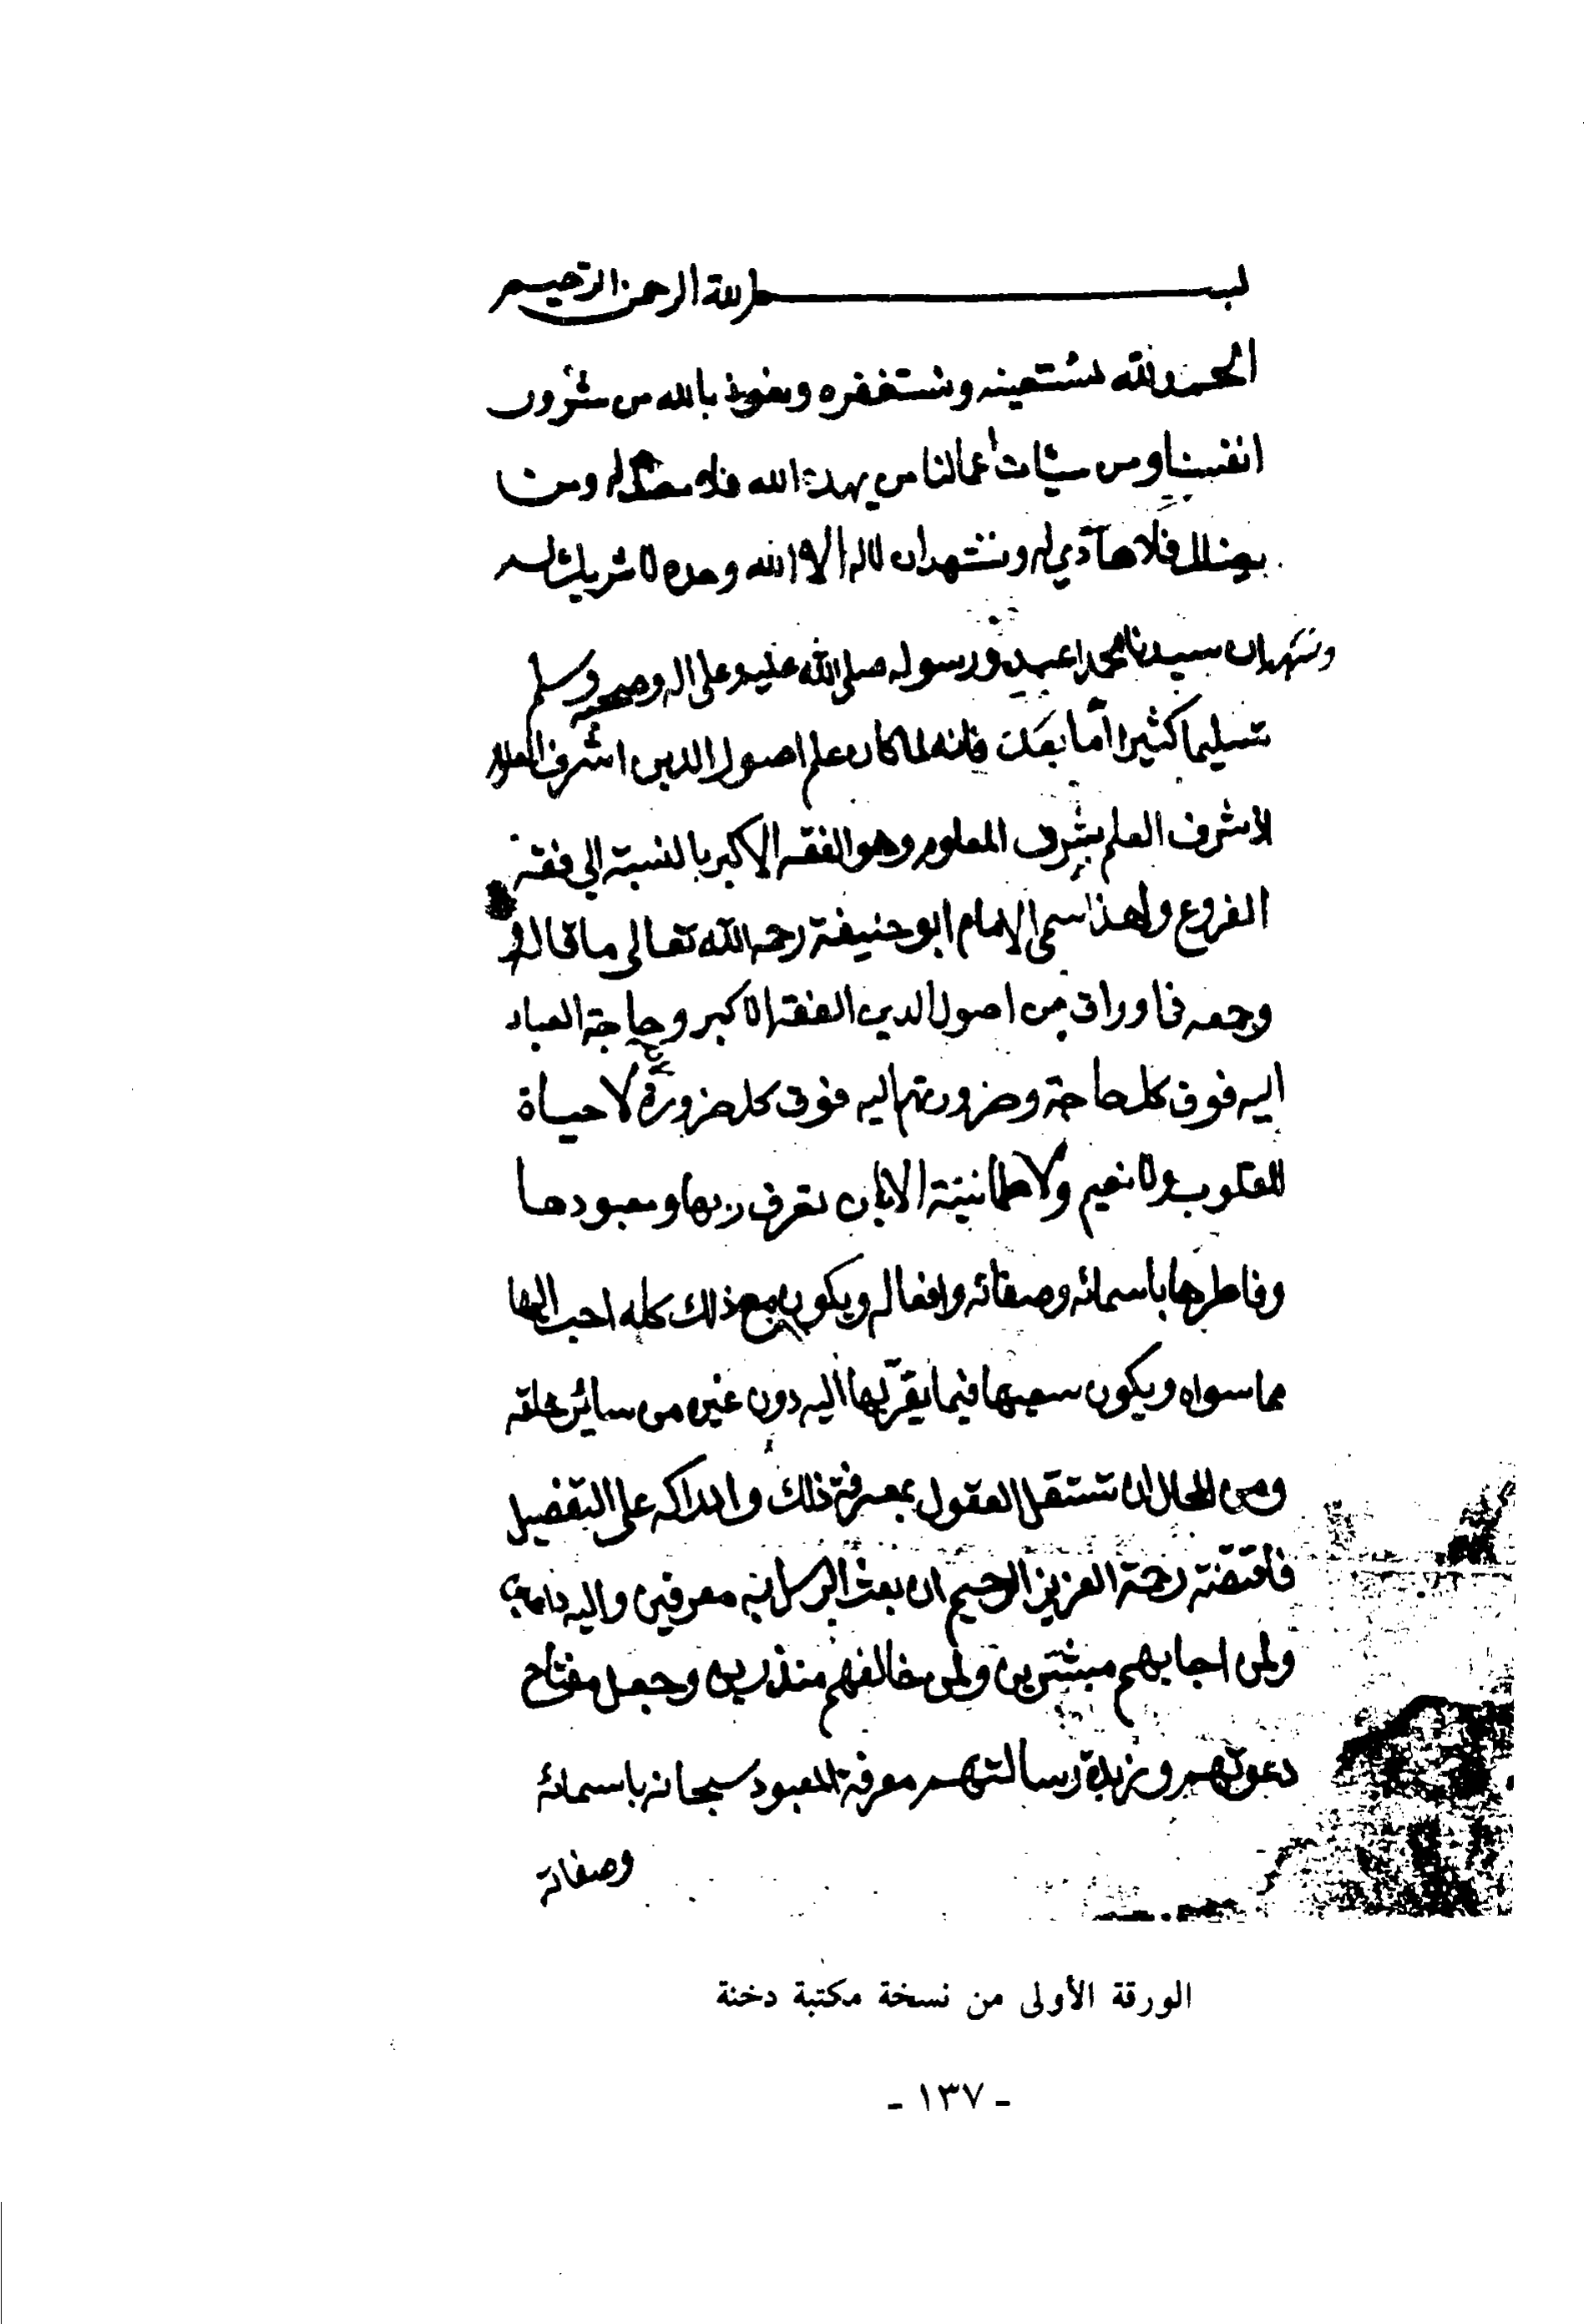 بسم الله الرحمن الرحيم
الحمد لله نستعينه ونستغفره ونعوذ بالله من شرور
انفسنا ومن سيئات اعمالنا من يهد الله فلا مضل له ومن
يضلل فلا هادي له ونشهد ان لا اله الا الله وحده لا شريك له
ونشهد ان سيدنا محمدا عبده ورسوله صلى الله عليه وعلى اله وصحبه وسلم
تسليما كثيرا اما بعد فانه لما كان علم اصول الدين اشرف العلوم
لاشرف العلم بشرف المعلوم وهو الفقه الاكبر بالنسبة الى فقه
الفروع ولهذا سمى الامام ابو حنيفة رحمه الله تعالى ما قاله
وجمعه في اوراق من اصول الدين الفقه الاكبر وحاجة العباد
اليه فوق كل حاجة وضرورتهم اليه فوق كل ضرورة لا حياة
للقلوب ولا نعيم ولا طمانينة الا بان تعرف ربها ومعبودها
وفاطرها باسمائه وصفاته وافعاله ويكون مع ذلك كله احب اليها
مما سواه ويكون سعيها فيما يقربها اليه دون غيره من سائر خلقه
ومن المحال ان تستقل العقول بمعرفة ذلك وادراكه على التفصيل
فاقتضت رحمة العزيز الرحيم ان بعث الرسل به معرفين واليه داعين
ولمن اجابهم مبشرين ولمن خالفهم منذرين وجعل مفتاح
دعوتهم وزبدة رسالتهم معرفة المعبود سبحانه باسمائه
وصفاته
الورقة الأولى من نسخة مكتبة دخنة
- ١٣٧ -